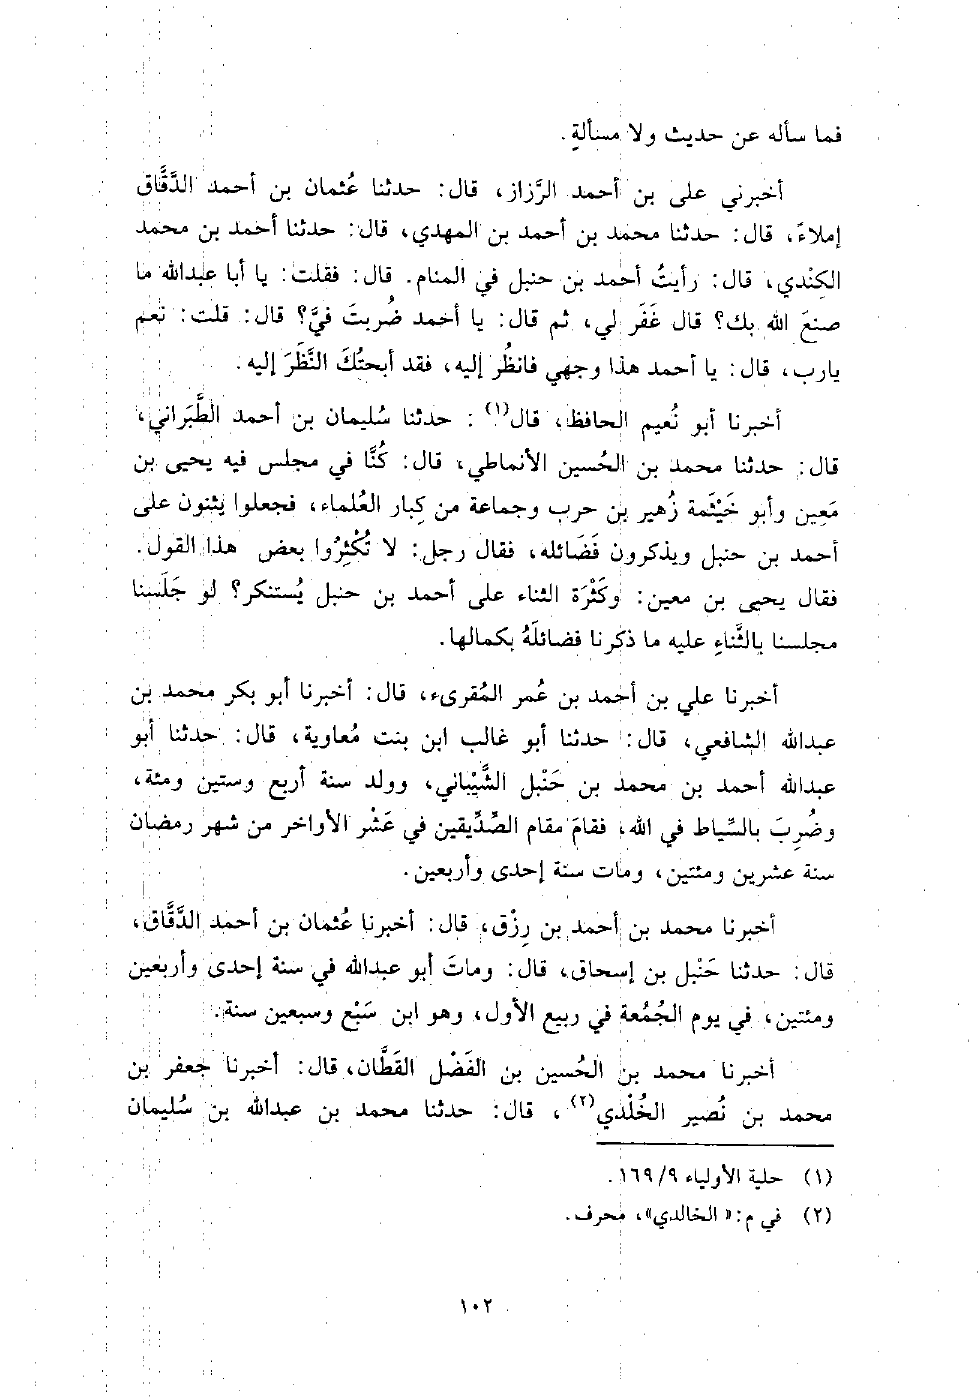 فما سأله عن حديث ولا مسألةٍ.
أخبرني علي بن أحمد الرَّزاز، قال: حدثنا عُثمان بن أحمد الدَّقَّاق
إملاءً، قال: حدثنا محمد بن أحمد بن المهدي، قال: حدثنا أحمد بن محمد
الكِنْدي، قال: رأيتُ أحمد بن حنبل في المنام. قال: فقلت: يا أبا عبدالله ما
صنعَ الله بك؟ قال غَفَر لي، ثم قال: يا أحمد ضُربتَ فيَّ؟ قال: قلت: نعم
يارب، قال: يا أحمد هذا وجهي فانظُر إليه، فقد أبحتُكَ النَّظَرَ إليه.
أخبرنا أبو نُعيم الحافظ، قال(١): حدثنا سُليمان بن أحمد الطَّبَراني،
قال: حدثنا محمد بن الحُسين الأنماطي، قال: كُنَّا في مجلس فيه يحيى بن
مَعِين وأبو خَيْثَمة زُهير بن حرب وجماعة من كِبار العُلماء، فجعلوا يثنون على
أحمد بن حنبل ويذكرون فَضَائله، فقال رجل: لا تُكْثِرُوا بعض هذا القول.
فقال يحيى بن معين: وكَثْرَة الثناء على أحمد بن حنبل يُستنكر؟ لو جَلَسنا
مجلسنا بالثَّناءِ عليه ما ذكرنا فضائلَهُ بكمالها.
أخبرنا علي بن أحمد بن عُمر المُقرىء، قال: أخبرنا أبو بكر محمد بن
عبدالله الشافعي، قال: حدثنا أبو غالب ابن بنت مُعاوية، قال: حدثنا أبو
عبدالله أحمد بن محمد بن حَنْبل الشَّيْباني، وولد سنة أربع وستين ومئة،
وضُرِبَ بالسِّياط في الله، فقامَ مقام الصِّدِّيقين في عَشْر الأواخر من شهر رمضان
سنة عشرين ومئتين، ومات سنة إحدى وأربعين.
أخبرنا محمد بن أحمد بن رِزْق، قال: أخبرنا عُثمان بن أحمد الدَّقَّاق،
قال: حدثنا حَنْبل بن إسحاق، قال: وماتَ أبو عبدالله في سنة إحدى وأربعين
ومئتين، في يوم الجُمُعة في ربيع الأول، وهو ابن سَبْع وسبعين سنة.
أخبرنا محمد بن الحُسين بن الفَضْل القَطَّان، قال: أخبرنا جعفر بن
محمد بن نُصير الخُلْدي(٢)، قال: حدثنا محمد بن عبدالله بن سُليمان
(١) حلية الأولياء ٩/ ١٦٩.
(٢) في م: «الخالدي»، محرف.
١٠٢